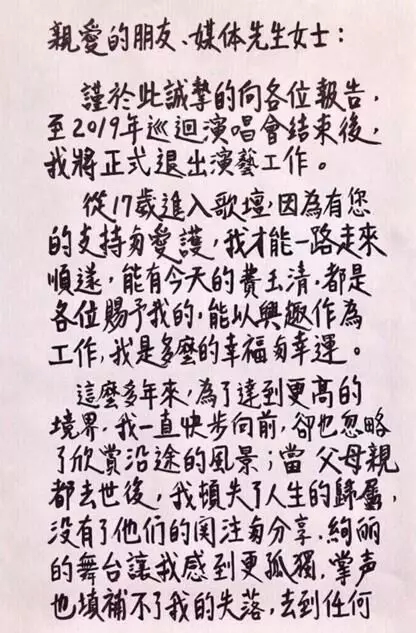 親愛的朋友、媒体先生女士：
謹於此誠摯的向各位報告，
至2019年巡迴演唱會結束後，
我將正式退出演藝工作。
從17歲進入歌壇，因為有您
的支持與愛護，我才能一路走來
順遂，能有今天的費玉清，都是
各位賜予我的，能以興趣作為
工作，我是多麼的幸福與幸運。
這麼多年來，為了達到更高的
境界，我一直快步向前，卻也忽略
了欣賞沿途的風景；當父母親
都去世後，我頓失了人生的歸屬，
没有了他们的関注與分享，絢麗
的舞台讓我感到更孤獨，掌声
也填補不了我的失落，去到任何